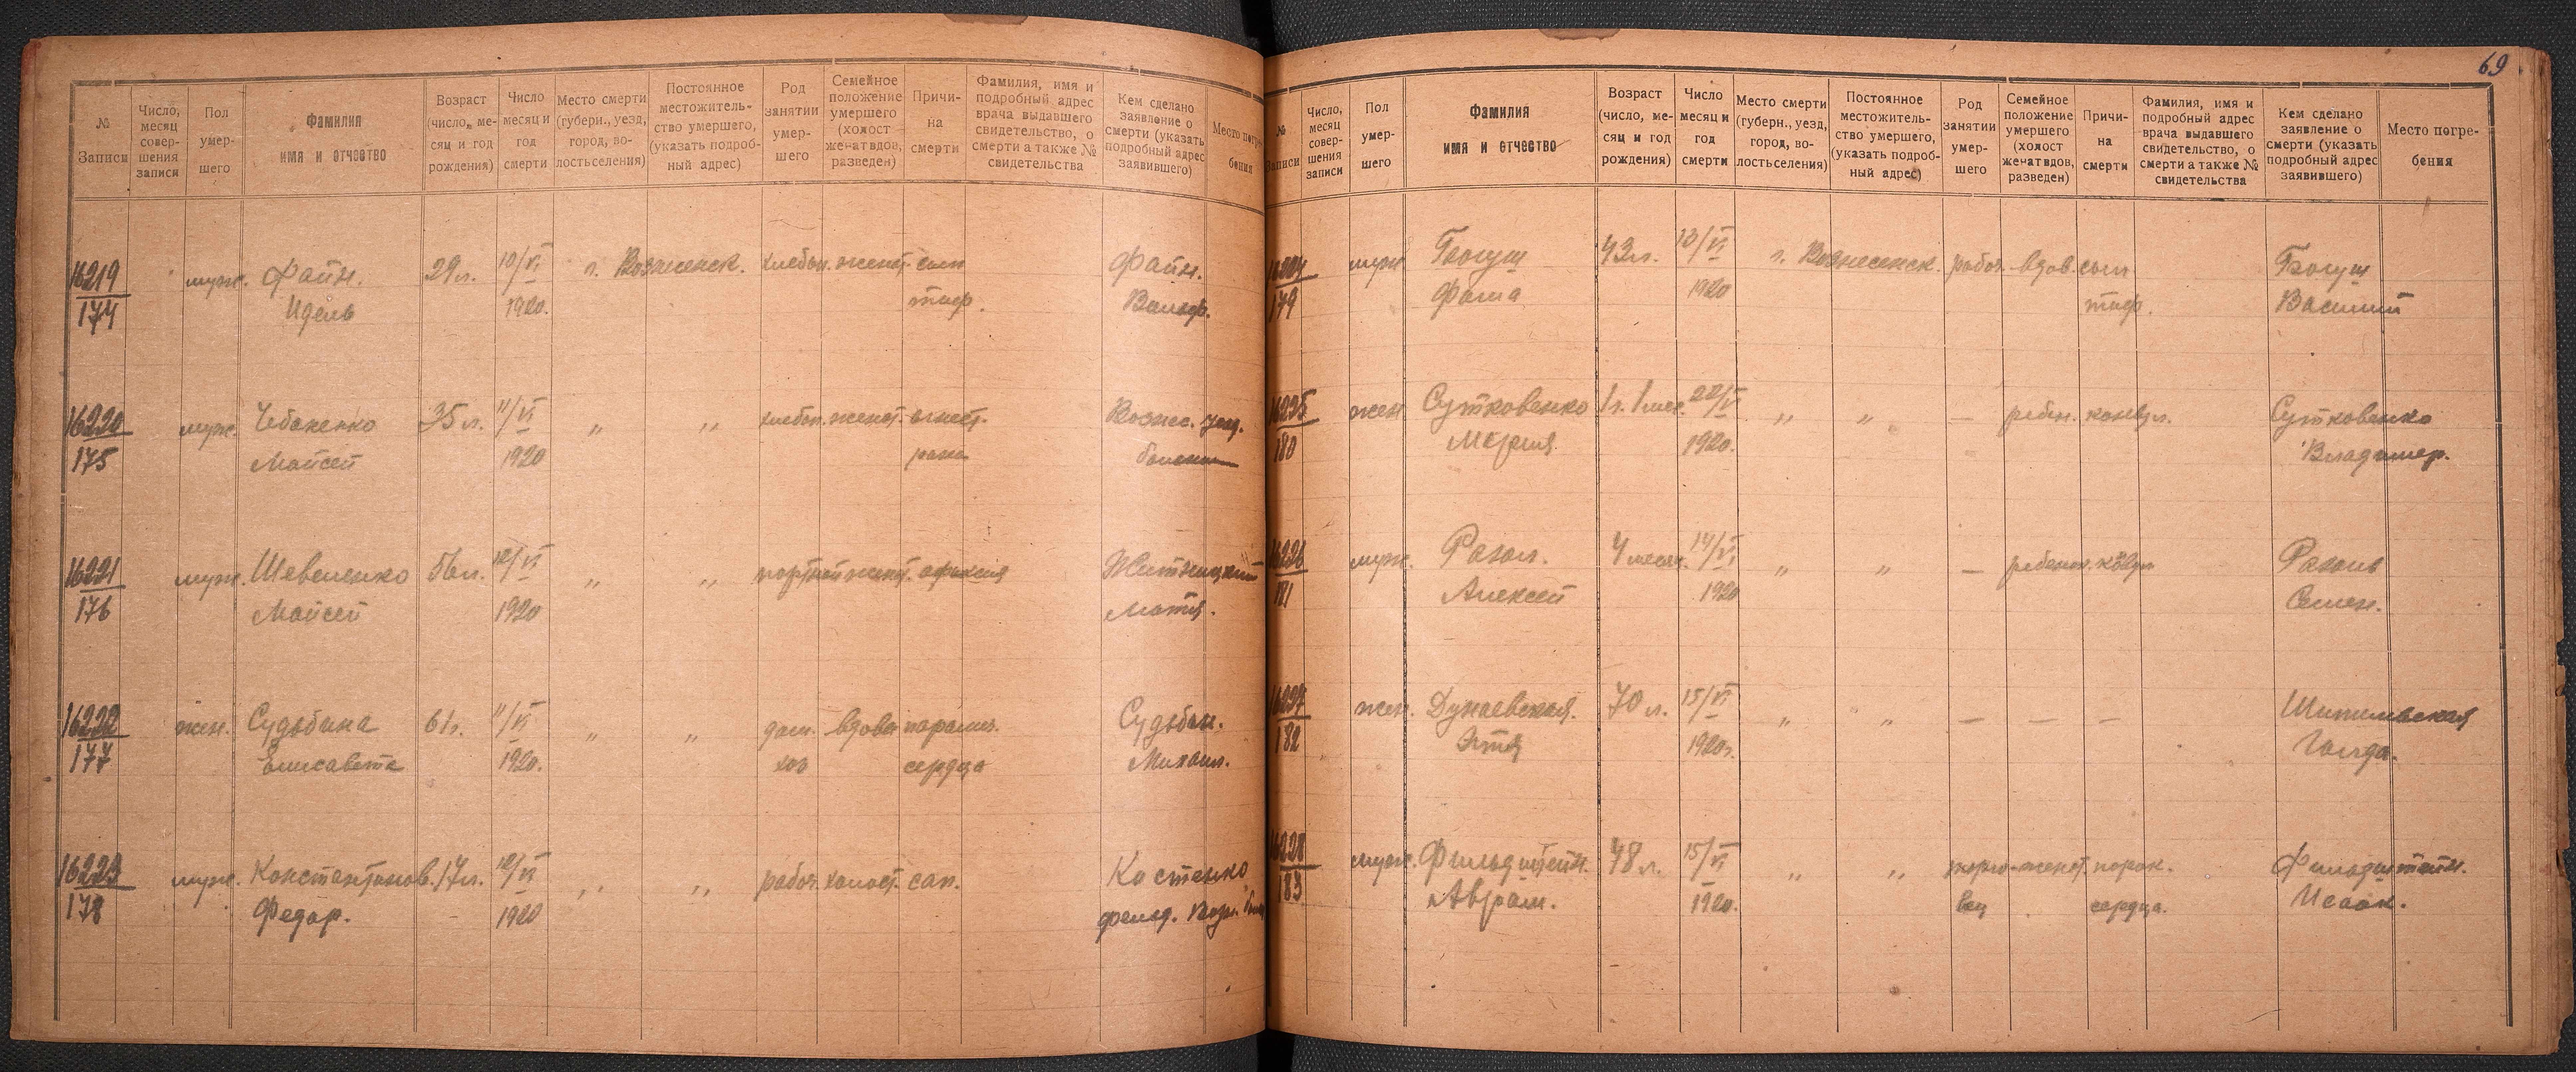 69
№ Записи
Число, месяц совершения записи
Пол умершего
Фамилия имя и отчество
Возраст (число, месяц и год рождения)
Число месяц и год смерти
Место смерти (губерн., уезд, город, волостьселения)
Постоянное местожительство умершего, (указать подробный адрес)
Род занятии умершего
Семейное положение умершего (холост женат вдов, разведен)
Причина смерти
Фамилия, имя и подробный адрес врача выдавшего свидетельство, о смерти а также № свидетельства
Кем сделано заявление о смерти (указать подробный адрес заявившего)
Место погребения
16219 муж. Файн. 29 л. 10/VI г. Вознесенск. хлебоп. женат. сып Файн.
174 Идель 1920. тиф. Вольф.
16220 муж. Чебаненко 35 л. 11/VI " " хлебоп. женат. огнест. Вознес. уезд.
175 Мойсей 1920 рана
16221 муж. Шевеленко 56 л. 12/VI " " портной женат. афиксия Житницкий
176 Мойсей 1920 Мотя.
16222 жен. Судьбина 61 г. 11/VI " " дом. вдова паралич. Судьбин.
177 Елисавета 1920. хоз сердца Михаил.
16223 муж. Константинов. 17 л. 12/VI " " работ. холост. сап. Костенко
178 Федор. 1920 фельд.
№ Записи
Число, месяц совершения записи
Пол умершего
Фамилия имя и отчество
Возраст (число, месяц и год рождения)
Число месяц и год смерти
Место смерти (губерн., уезд, город, волостьселения)
Постоянное местожительство умершего, (указать подробный адрес)
Род занятии умершего
Семейное положение умершего (холост женат вдов, разведен)
Причина смерти
Фамилия, имя и подробный адрес врача выдавшего свидетельство, о смерти а также № свидетельства
Кем сделано заявление о смерти (указать подробный адрес заявившего)
Место погребения
16224 муж Богуш 43 л. 13/VI г. Вознесенск. работ. вдов. сып Богуш
179 Фома 1920 тиф. Василий
16225 жен. Сутковенко 1 г. 1 мес. 22/VI " " — ребен. конвул. Сутковенко
180 Мария 1920. Владимер.
16226 муж. 4 месяц. 14/VI " " — ребенок.
181 Алексей 1920 Семен.
16227 жен. Дунаевская. 70 л. 15/VI " " — — —
182 Этя 1920 г. Голда.
16228 муж. Фильдштейн. 48 л. 15/VI " " торго- женат. порок. Фильдштейн.
183 Абрам. 1920. вец сердца. Исаак.